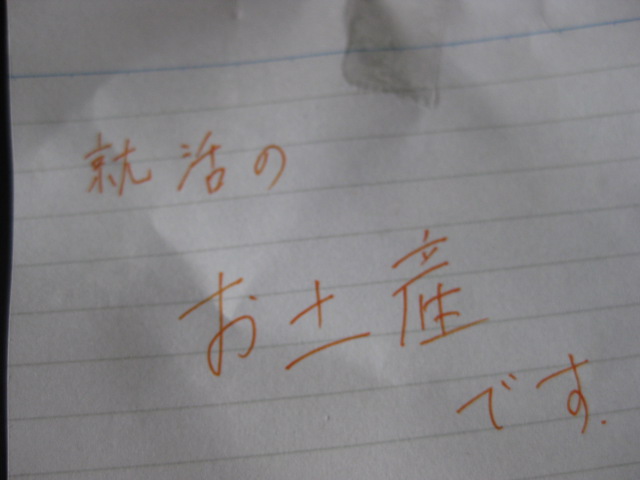 就活の
お土産
です.